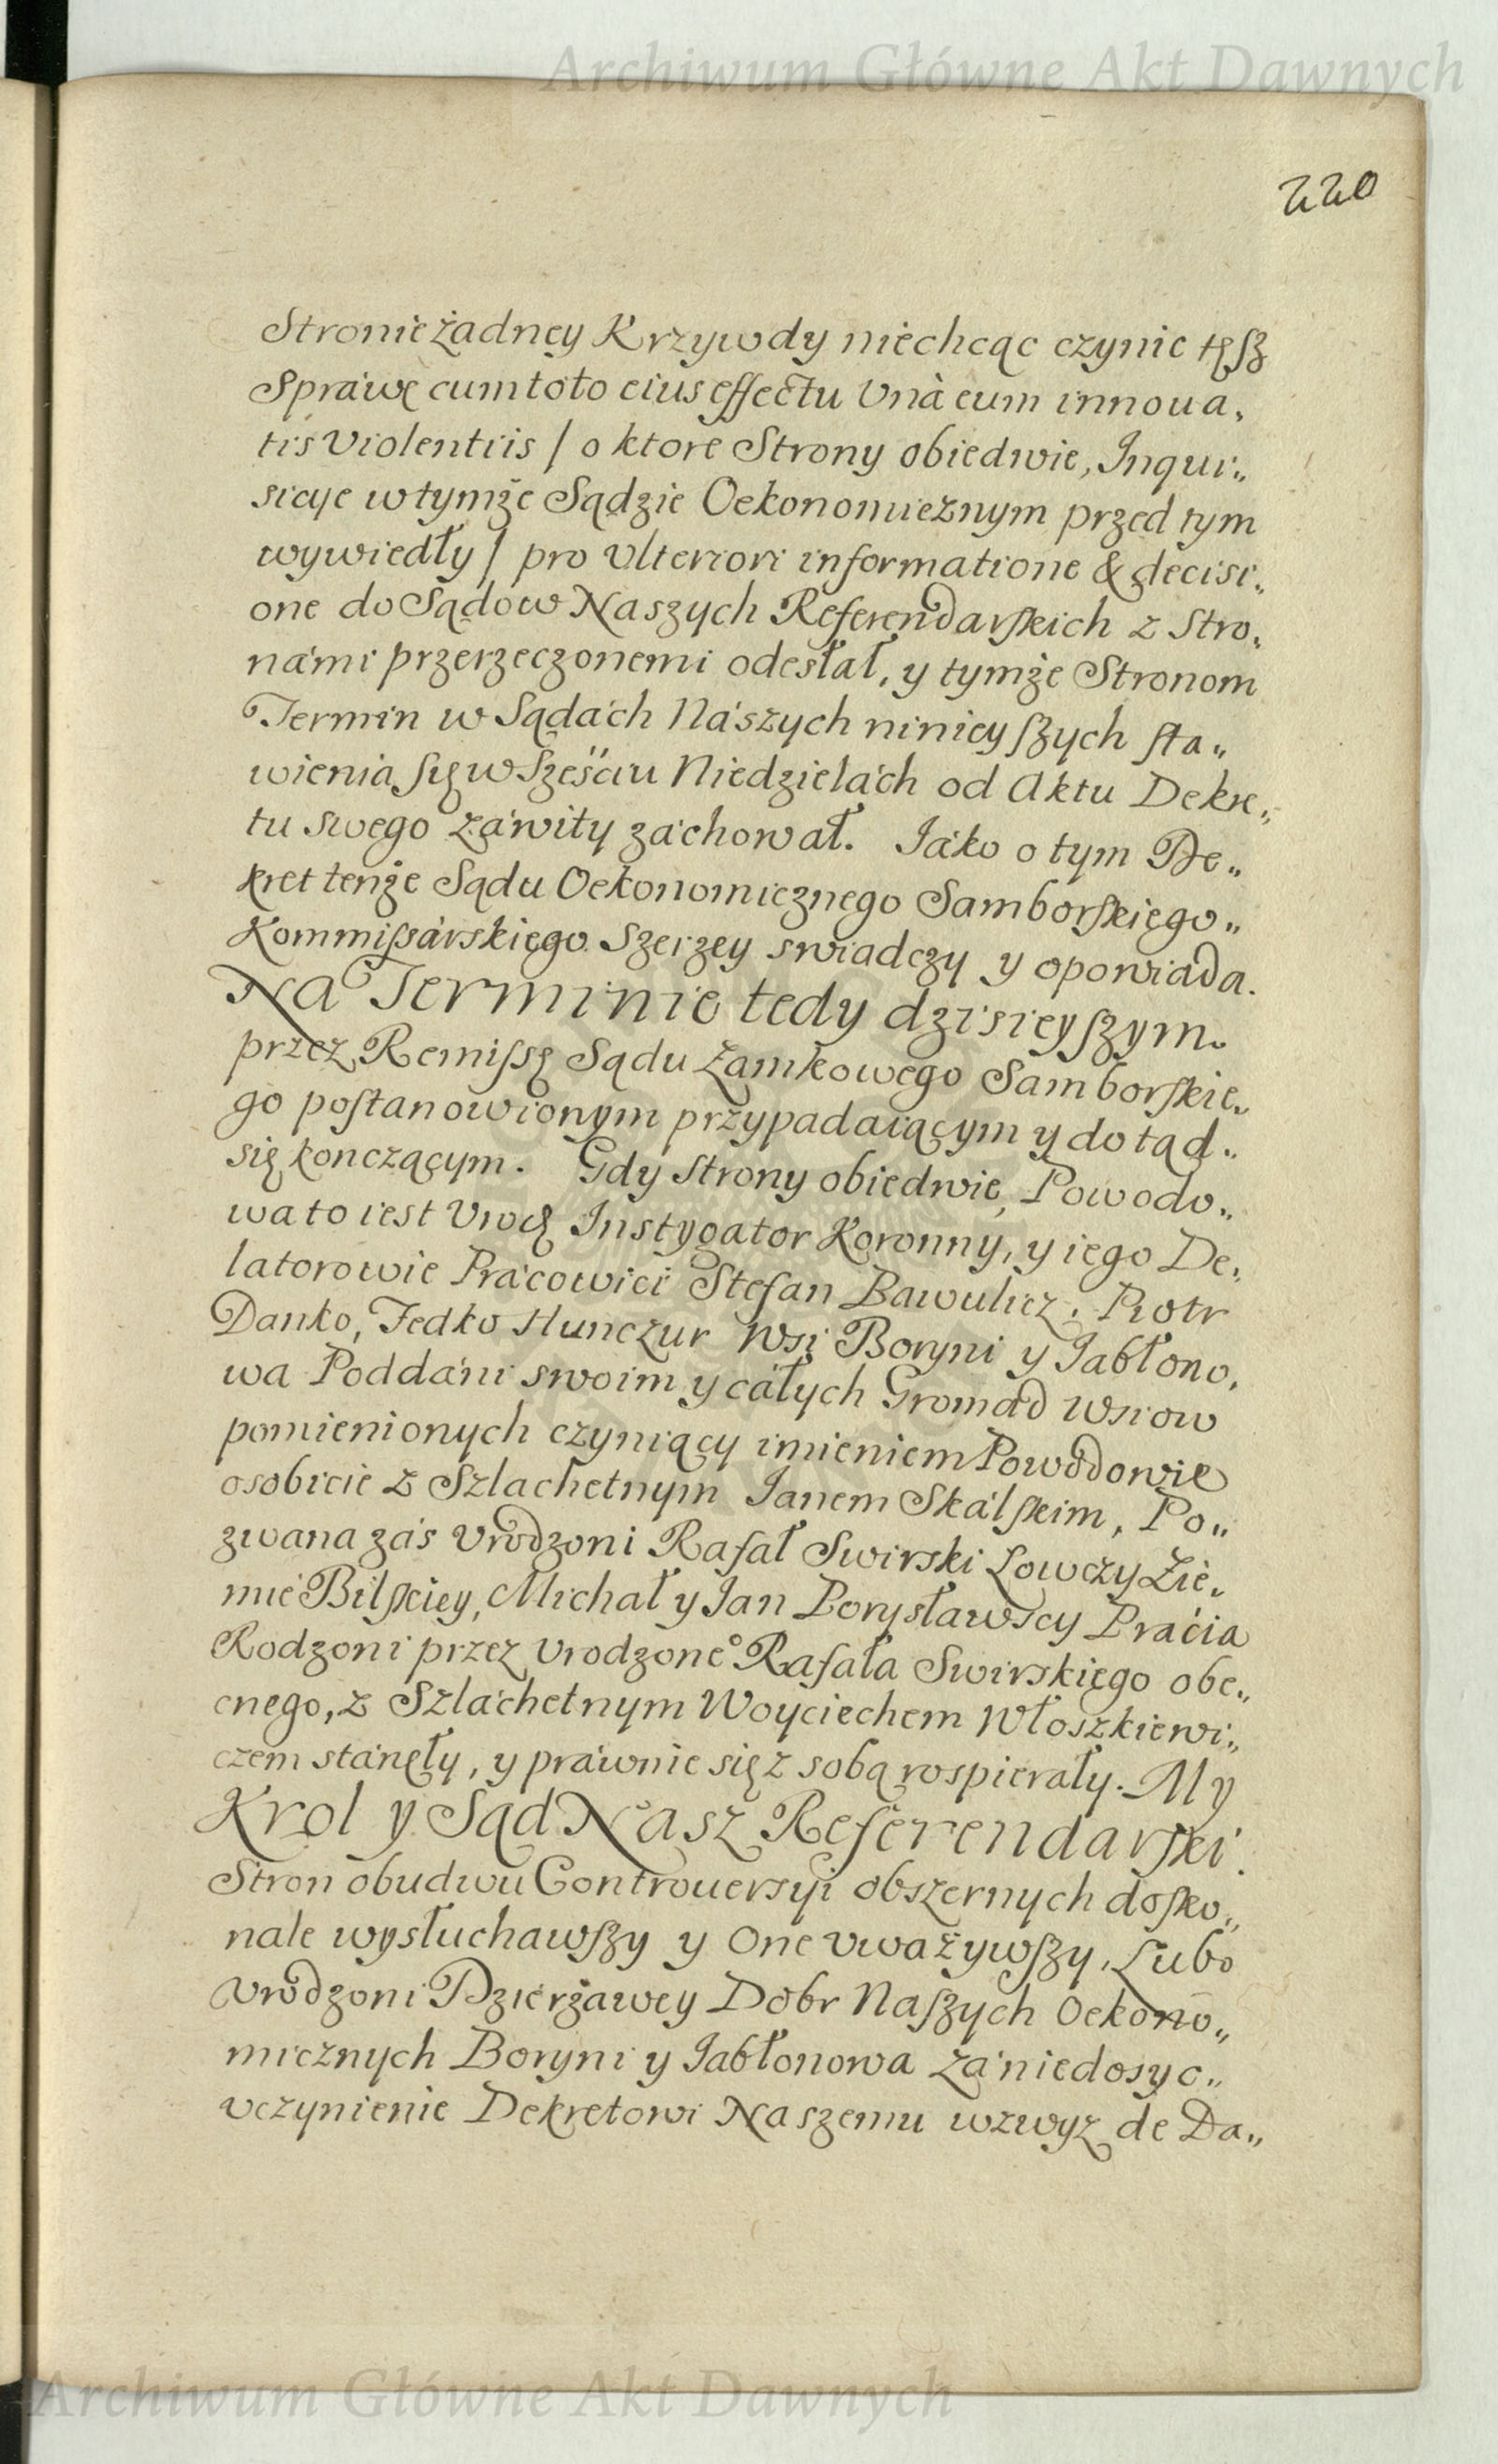 Archiwum Główne Akt Dawnych
220
Stronie żadney Krzywdy niechcąc czynic tęsz
Spráwę cum toto eius effectu Unà cum innoua,
tis Violentiis / o ktore Strony obiedwie, Inqui„
sicye w tymże Sądzie Oekonomicznym przed tym
wywiedły / pro Vlteriori informatione & decisi„
one do Sądow Naszych Referendarskich z Stro„
námi przerzeczonemi odesłał, y tymże Stronom
Termin w Sądách Nászych ninieyszych sta„
wienia się w Sześciu Niedzielách od Aktu Dekre„
tu swego záwity záchował. Iáko o tym De„
kret tenże Sądu Oekonomicznego Samborskiego„
Kommissárskiego Szerzey swiadczy y opowiáda.
Na Terminie tedy dzisieyszym.
przez Remissę Sądu Zamkowego Samborskie„
go postanowionym przypadaiącym y dotąd„
się konczącym. Gdy Strony obiedwie, Powodo„
wa to iest Vrodz Instygator Koronny, y iego De„
latorowie Prácowici Stefan Bawulicz, Piotr
Danko, Fedko Hunczur Wsi Boryni y Jabłono,
wa Poddáni swoim y cáłych Gromad Wsiow
pomienionych czyniący imieniem Powodowie
osobicie z Szlachetnym Janem Skálskim, Po„
zwana zás Vrodzoni Rafał Swirski Lowczy Zie„
mie Bilskiey, Michał y Jan Borysławscy Bracia
Rodzoni przez Vrodzone° Rafała Swirskiego obe„
cnego, z Szláchetnym Woyciechem Włoszkiewi„
czem stánęły, y práwnie się z sobą rospierały. My
Krol y Sąd Nasz Referendarski.
Stron obudwu Controuersyi obszernych dosko„
nale wysłuchawszy y One vważywszy, Lubo
Vrodzoni Dzierżawcy Dobr Naszych Oekono„
micznych Boryni y Jabłonowa zá niedosyc„
vczynienie Dekretowi Naszemu wzwyz de Da„
Archiwum Główne Akt Dawnych